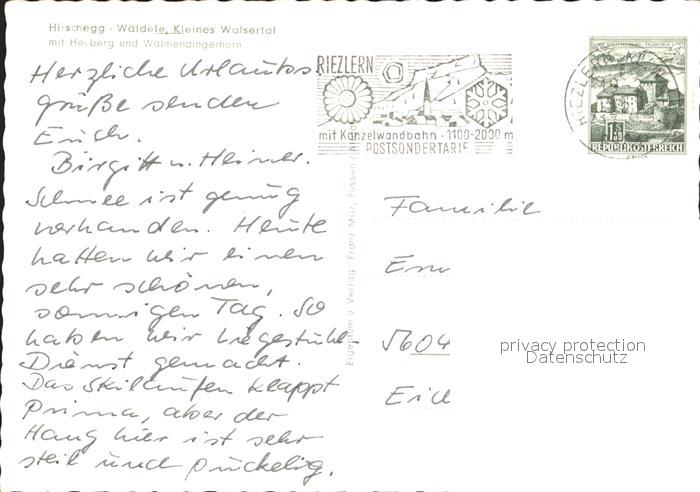 Hirschegg - Wäldele, Kleines Walsertal
mit Heuberg und Walmendingerhorn
Herzliche Urlaubs-
grüße senden
Euch.
Birgitt u. Heiner.
Schnee ist genug
vorhanden. Heute
hatten wir einen
sehr schönen,
sonnigen Tag. So
haben wir Liegestuhl-
Dienst gemacht.
Das Skilaufen klappt
Prima, aber der
Hang hier ist sehr
steil und puckelig.
Eigentum u. Verlag: Franz Milz, Füssen
RIEZLERN
mit Kanzelwandbahn - 1100-2000 m
POSTSONDERTARIF
RIEZLERN
REPUBLIK ÖSTERREICH
Familie
5604
privacy protection
Datenschutz